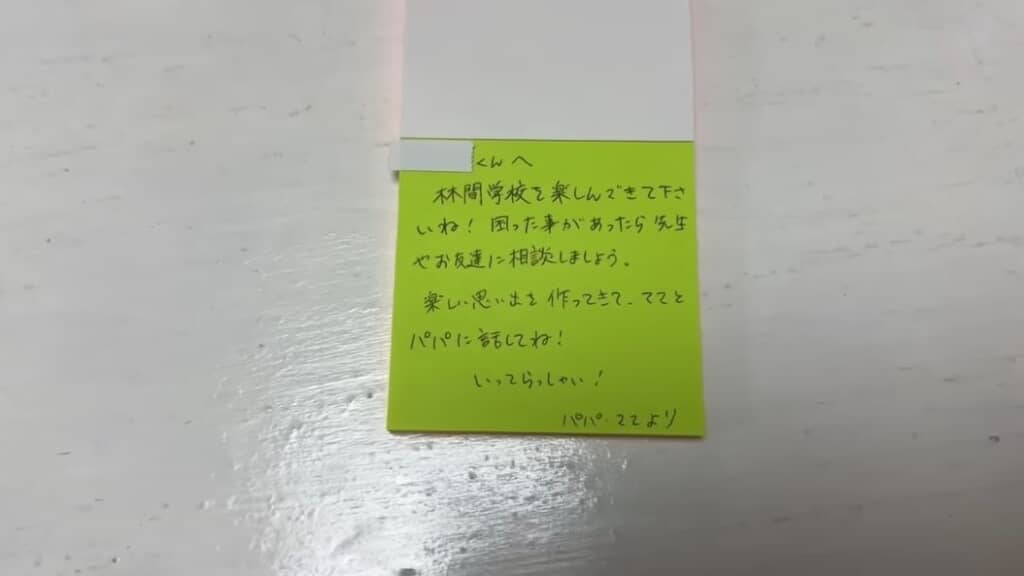 くんへ
林間学校を楽しんできて下さ
いね！困った事があったら先生
やお友達に相談しましょう。
楽しい思い出を作ってきて、ててと
パパに話してね！
いってらっしゃい！
パパ・ててより